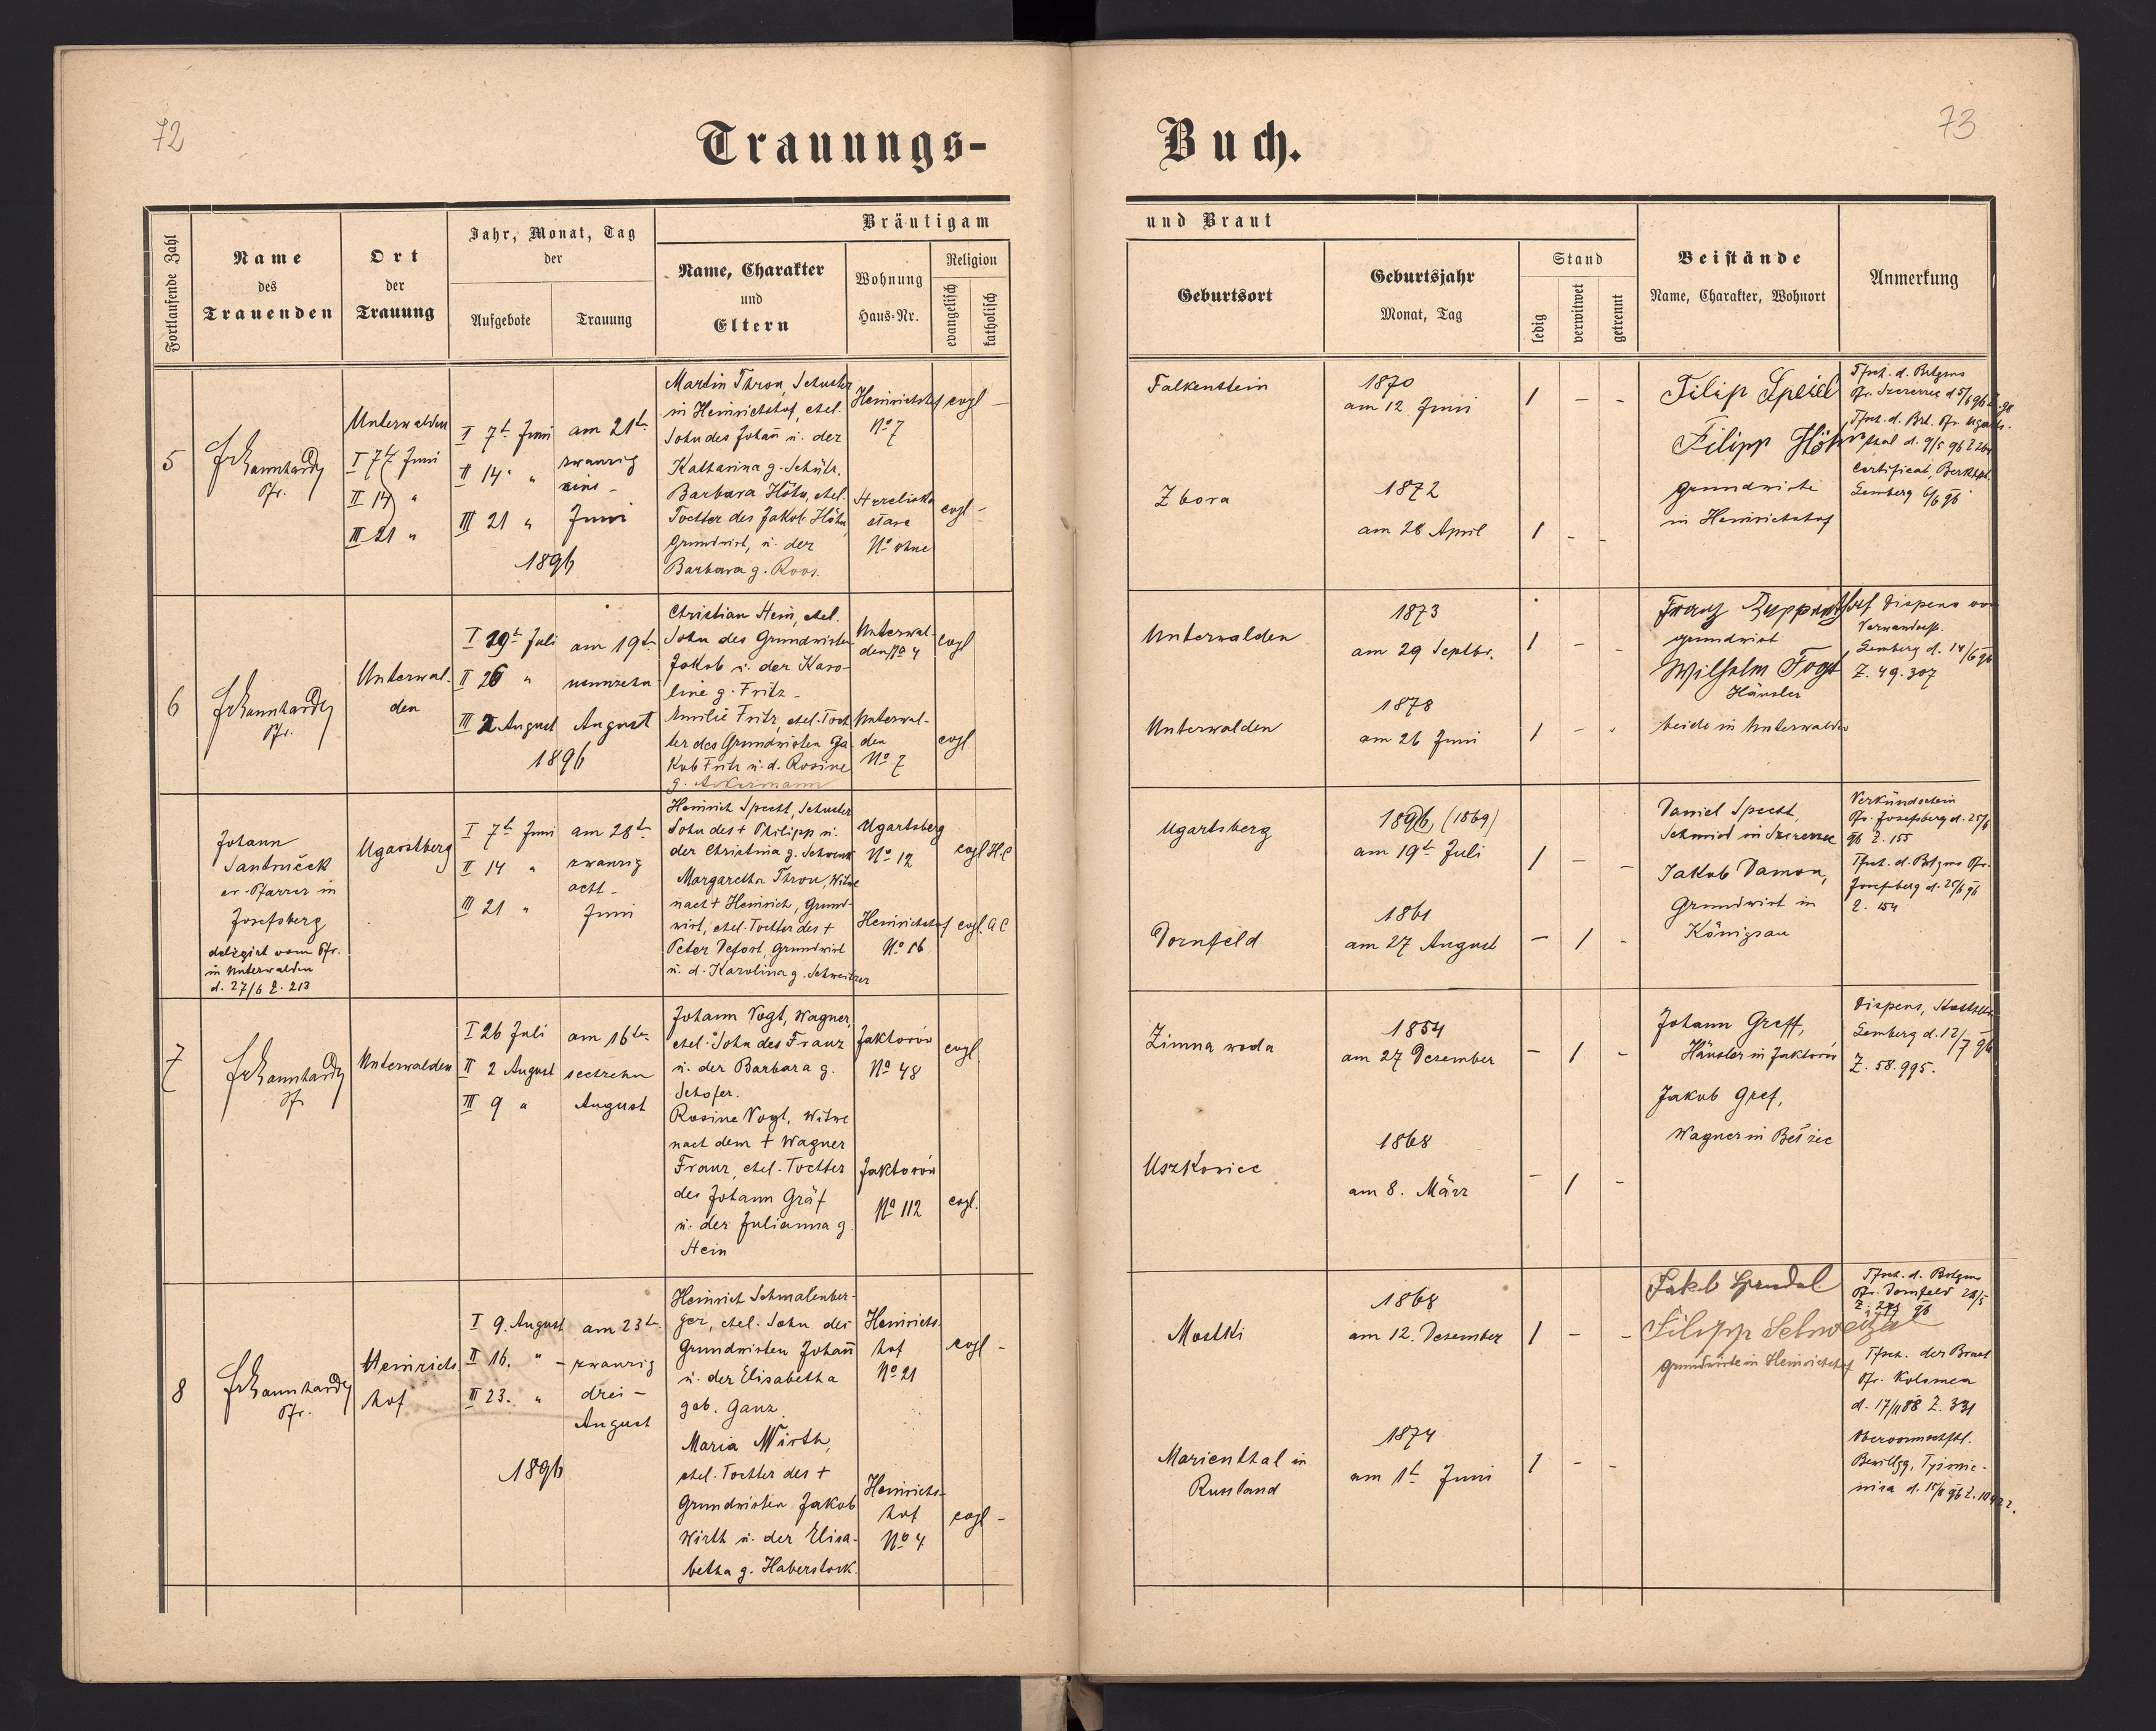 72
Trauungs-
Fortlaufende Zahl
Name
des
Trauenden
Ort
der
Trauung
Jahr, Monat, Tag
der
Aufgebote
Trauung
Bräutigam
Name, Charakter
und
Eltern
Wohnung
Haus-Nr.
Religion
evangelisch
katholisch
5
Pfr.
Unterwalden
I 7t Juni
II 14 "
III 21 "
I 7t Juni
II 14 "
III 21 "
am 21t
zwanzig
eins -
Juni
1896
Martin Thron, Schuster
in Heinrichshof, ehel.
Sohn des Johañ u. der
Katharina g. Schütz.
Barbara Höhn, ehel.
Tochter des Jakob Höhn,
Grundwirt, u. der
Barbara g. Roos.
Heinrichshof
No 7
stare
No ohne
evgl -
evgl -
6
Pfr.
Unterwal-
den
I 19t Juli
II 26 "
III 2 August
am 19t
neunzehn
August
1896
Christian Hein, ehel.
Sohn des Grundwirten
Jakob u. der Karo-
line g. Fritz -
Amilie Fritz, ehel. Toch
ter des Grundwirten Ja-
kob Fritz u. d. Rosine
g. Ackermann
Unterwal-
den, No 4
Unterwal-
den
No 7
evgl
evgl
Johann
Santruček
er. Pfarrer in
Josefsberg
delegirt vom Pfr.
in Unterwalden
d. 27/6 Z. 213
Ugarstberg
I 7t Juni
II 14 "
III 21 "
am 28t
zwanzig
acht -
Juni
Heinrich Specht, Schuster
Sohn des + Philipp u.
der Christina g. Schwenk
Margaretha Thron, Witwe
nach + Heinrich, Grund-
wirt, ehel. Tochter des +
Peter Defort, Grundwirt
u. d. Karolina g. Schweitzer
Ugartsberg
No 12
Heinrichshof
No 16
evgl H.C
evgl. A C
7
Pf.
Unterwalden
I 26 Juli
II 2 August
III 9 "
am 16te
sechzehn
August
Johann Vogt, Wagner,
ehel. Sohn des Franz
u. der Barbara g.
Schofer.
Rosine Vogt, Witwe
nach dem + Wagner
Franz, ehel. Tochter
des Johann Gräf
u. der Julianna g.
Hein
Jaktorów
No 48
Jaktorów
No 112
evgl.
evgl.
8
Pfr.
Heinrichs-
hof
I 9. August
II 16. "
III 23. "
am 23te
- zwanzig
drei -
August
1896
Heinrich Schmalenber-
ger, ehel. Sohn des
Grundwirten Johañ
u. der Elisabetha
geb. Ganz
Maria Wirth,
ehel. Tochter des +
Grundwirten Jakob
Wirth u. der Elisa-
betha g. Haberstock.
Heinrichs-
hof
No 21
Heinrichs-
hof
No 4
evgl -
evgl -
73
Buch.
und Braut
Geburtsort
Geburtsjahr
Monat, Tag
Stand
ledig
verwitwet
getrennt
Beistände
Name, Charakter, Wohnort
Anmerkung
Falkenstein
1870
am 12. Juni
1 - -
Zbora
1872
am 28 April
1 - -
Filip Speiel
Filipp Höhn
Grundwirte
in Heinrichshof
Tfsch. d. Brtgms
Certificat,
Lemberg 6/6 96
Unterwalden
1873
am 29 Septbr.
1 - -
Unterwalden
1878
am 26 Juni
1 - -
Franz
grundwirt
Wilhelm Fogt,
Häusler
beide in Unterwalden
Dispens von
Verwandsch.
Lemberg d. 14/6 96
Z. 49.307
Ugartsberg
1896, (1869)
am 19t Juli
1 - -
Dornfeld
1861
am 27 August
- 1 -
Daniel Specht,
Schmied in Szczerzec
Jakob Damon,
Grundwirt in
Königsau
Verkündschein
Pfr. Josefsberg d. 25/6
96 Z. 155
Tfsch. d. Brtgms Pfr.
Josefsberg d. 25/6 96
Z. 154
Zimna woda
1854
am 27 Dezember
- 1 -
Uszkowice
1868
am 8. März
- 1 -
Johann Greff,
Häusler in Jaktorów
Jakob Gref,
Wagner in
Dispens,
Lemberg d. 12/7 96
Z. 58.995.
Mostki
1868
am 12. Dezember
1 - -
Marienthal in
Russland
1874
am 1t Juni
1 - -
Filipp Schweitzer
grundwirte in Heinrichshof
Tfsch. d. Brtgms
Pfr. Dornfeld
Tfsch. der Braut
Pfr. Kolomea
d. 17/11 88 Z. 331